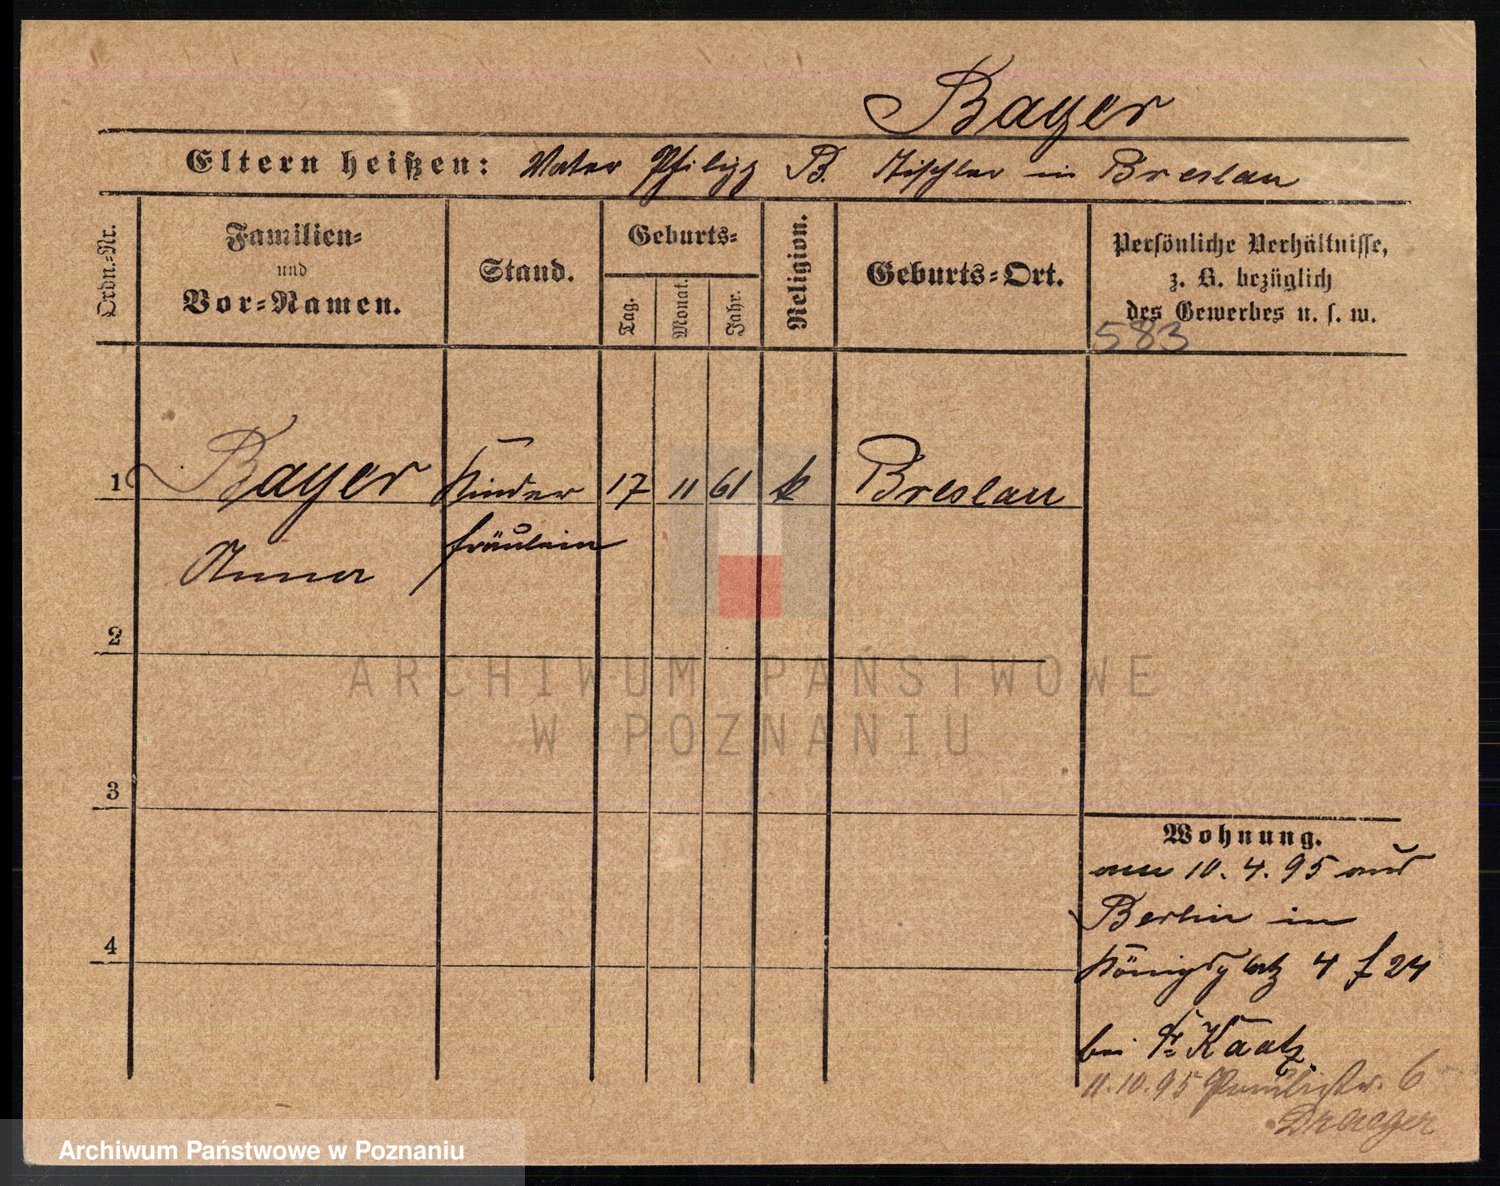 Bayer
Eltern heißen: Vater Philipp B. Tischler in Breslau
Ordn.-Nr.
Familien-
und
Vor-Namen.
Stand.
Geburts-
Tag.
Monat.
Jahr.
Religion.
Geburts-Ort.
Persönliche Verhältnisse,
z. B. bezüglich
des Gewerbes u. s. w.
583
1 Bayer Kinder 17 11 61 k Breslau
Anna fräulein
2
3
4
Wohnung.
am 10. 4. 95 aus
Berlin in
Königsplatz 4 f 24
bei Fr Kaatz
11. 10. 95 6
Draeger
ARCHIWUM PAŃSTWOWE
W POZNANIU
Archiwum Państwowe w Poznaniu